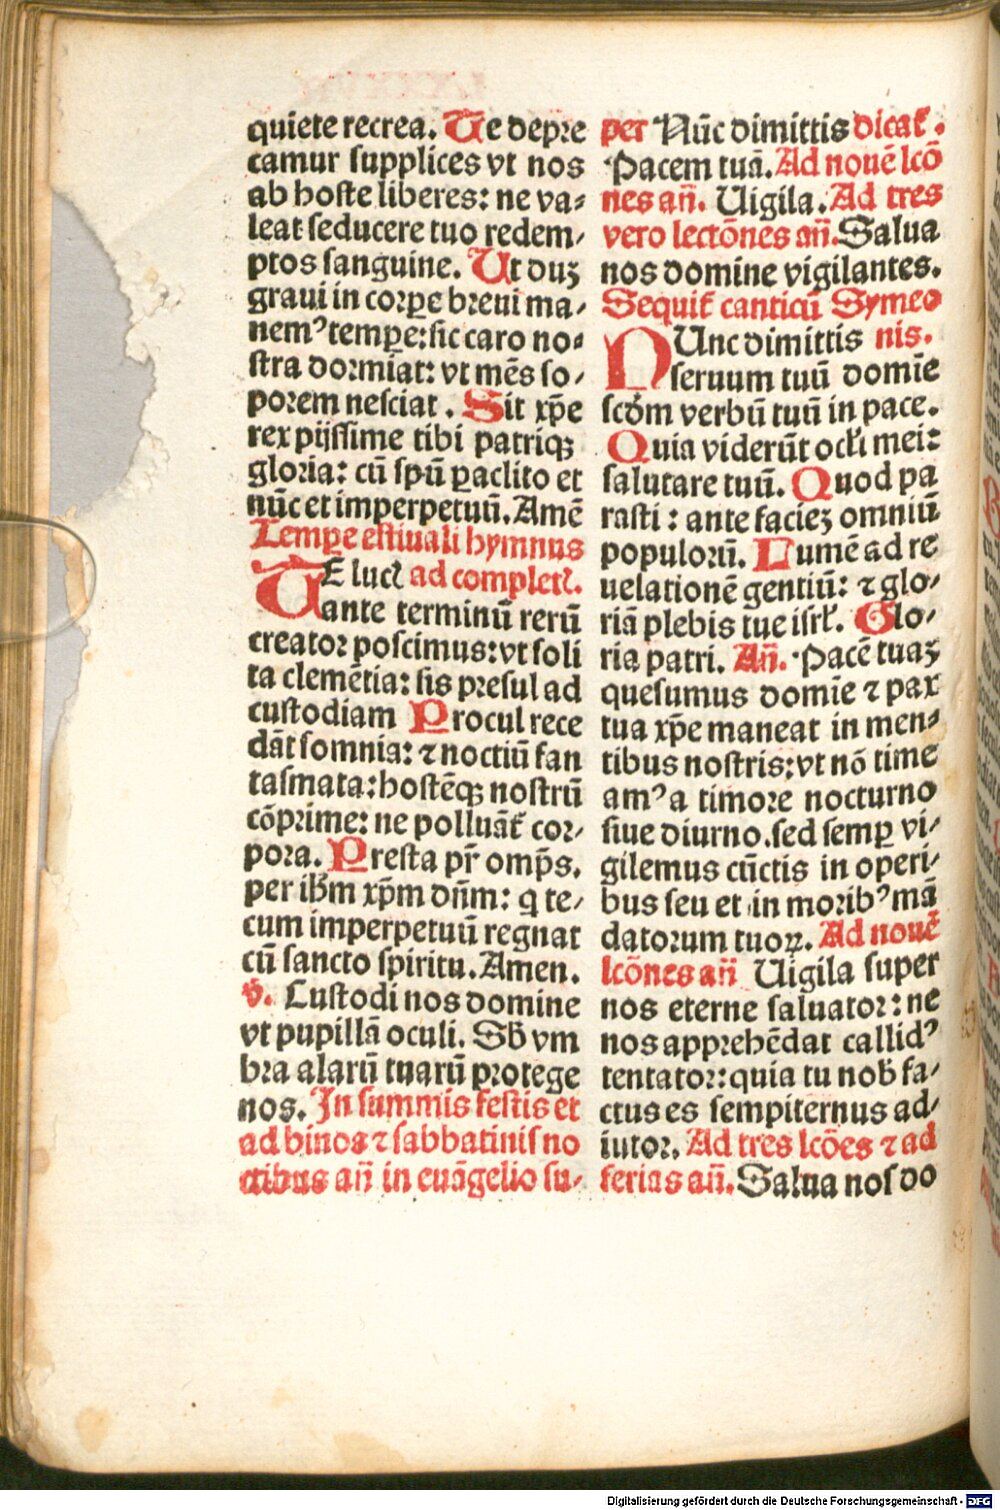 quiete recrea. Te depre
camur supplices vt nos
ab hoste liberes: ne va⸗
leat seducere tuo redem⸗
ptos sanguine. Ut duꝫ
graui in corꝑe breui ma⸗
nemꝰ temꝑe: sic caro no⸗
stra dormiat: vt mēs so⸗
porem nesciat. Sit xp̄e
rex pijssime tibi patriqꝫ
gloria: cū sp̄ū ꝑaclito et
nūc et imperpetuū. Amē
Temꝑe estiuali hymnus
TE lucꝭ ad completꝭ.
ante terminū rerū
creator poscimus: vt soli
ta clemētia: sis presul ad
custodiam Procul rece
dāt somnia: ⁊ noctiū fan
tasmata: hostēqꝫ nostrū
cōprime: ne polluāt᷑ cor⸗
pora. Presta pr̄ omp̄s.
per ih̄m xp̄m dn̄m: q̄ te⸗
cum imperpetuū regnat
cū sancto spiritu. Amen.
℣. Custodi nos domine
vt pupillā oculi. Sb̄ vm
bra alarū tuarū protege
nos. In summis festis et
ad binos ⁊ sabbatinis no
ctibus an̄ in euāgelio su⸗
per Nūc dimittis dicat᷑.
Pacem tuā. Ad nouē lcō
nes an̄. Uigila. Ad tres
vero lectōnes an̄. Salua
nos domine vigilantes.
Sequit᷑ canticū Symeo
NUnc dimittis nis.
seruum tuū domīe
scd̄m verbū tuū in pace.
Quia viderūt ocl̄i mei:
salutare tuū. Quod pa
rasti: ante facieꝫ omniū
populorū. Lumē ad re
uelationē gentiū: ⁊ glo⸗
riā plebis tue isrl̄. Glo⸗
ria patri. An̄. Pacē tuaꝫ
quesumus domīe ⁊ pax
tua xp̄e maneat in men⸗
tibus nostris: vt nō time
amꝰ a timore nocturno
siue diurno. sed semꝑ vi⸗
gilemus cūctis in operi⸗
bus seu et in moribꝰ mā
datorum tuoꝝ. Ad nouē
lcōnes an̄ Uigila super
nos eterne saluator: ne
nos apprehēdat callidꝰ
tentator: quia tu nob̄ fa⸗
ctus es sempiternus ad⸗
iutor. Ad tres lcōes ⁊ ad
ferias an̄. Salua nos do
Digitalisierung gefördert durch die Deutsche Forschungsgemeinschaft - DFG